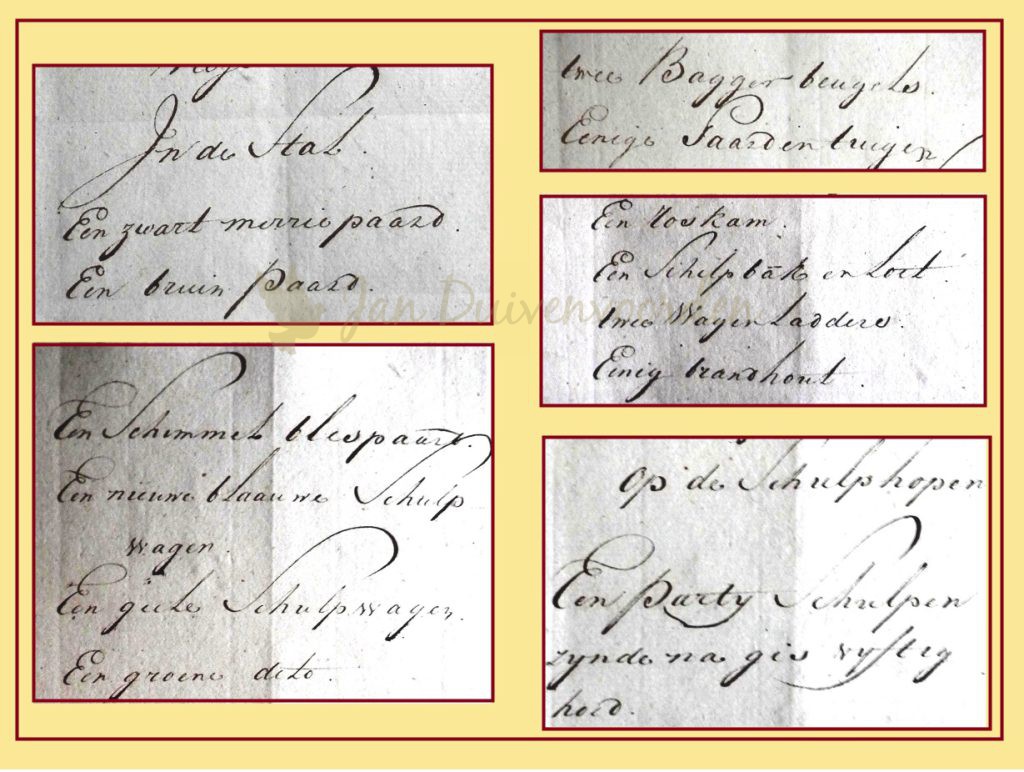 In de Stal.
Een zwart merrie paard.
Een bruin paard.
Een Schimmel blespaard.
Een nieuwe blaauwe Schulp
wagen.
Een geele Schulpwagen.
Een groene dito.
twee Bagger beugels.
Eenige Paardentuigen
Een roskam.
Een Schelpbak en Loet.
twee Wagen Ladders.
Einig brandhout.
Op de Schulphopen
Een Party Schulpen
zynde na gis vyftig
hoed.
Jan Duivenvoorden